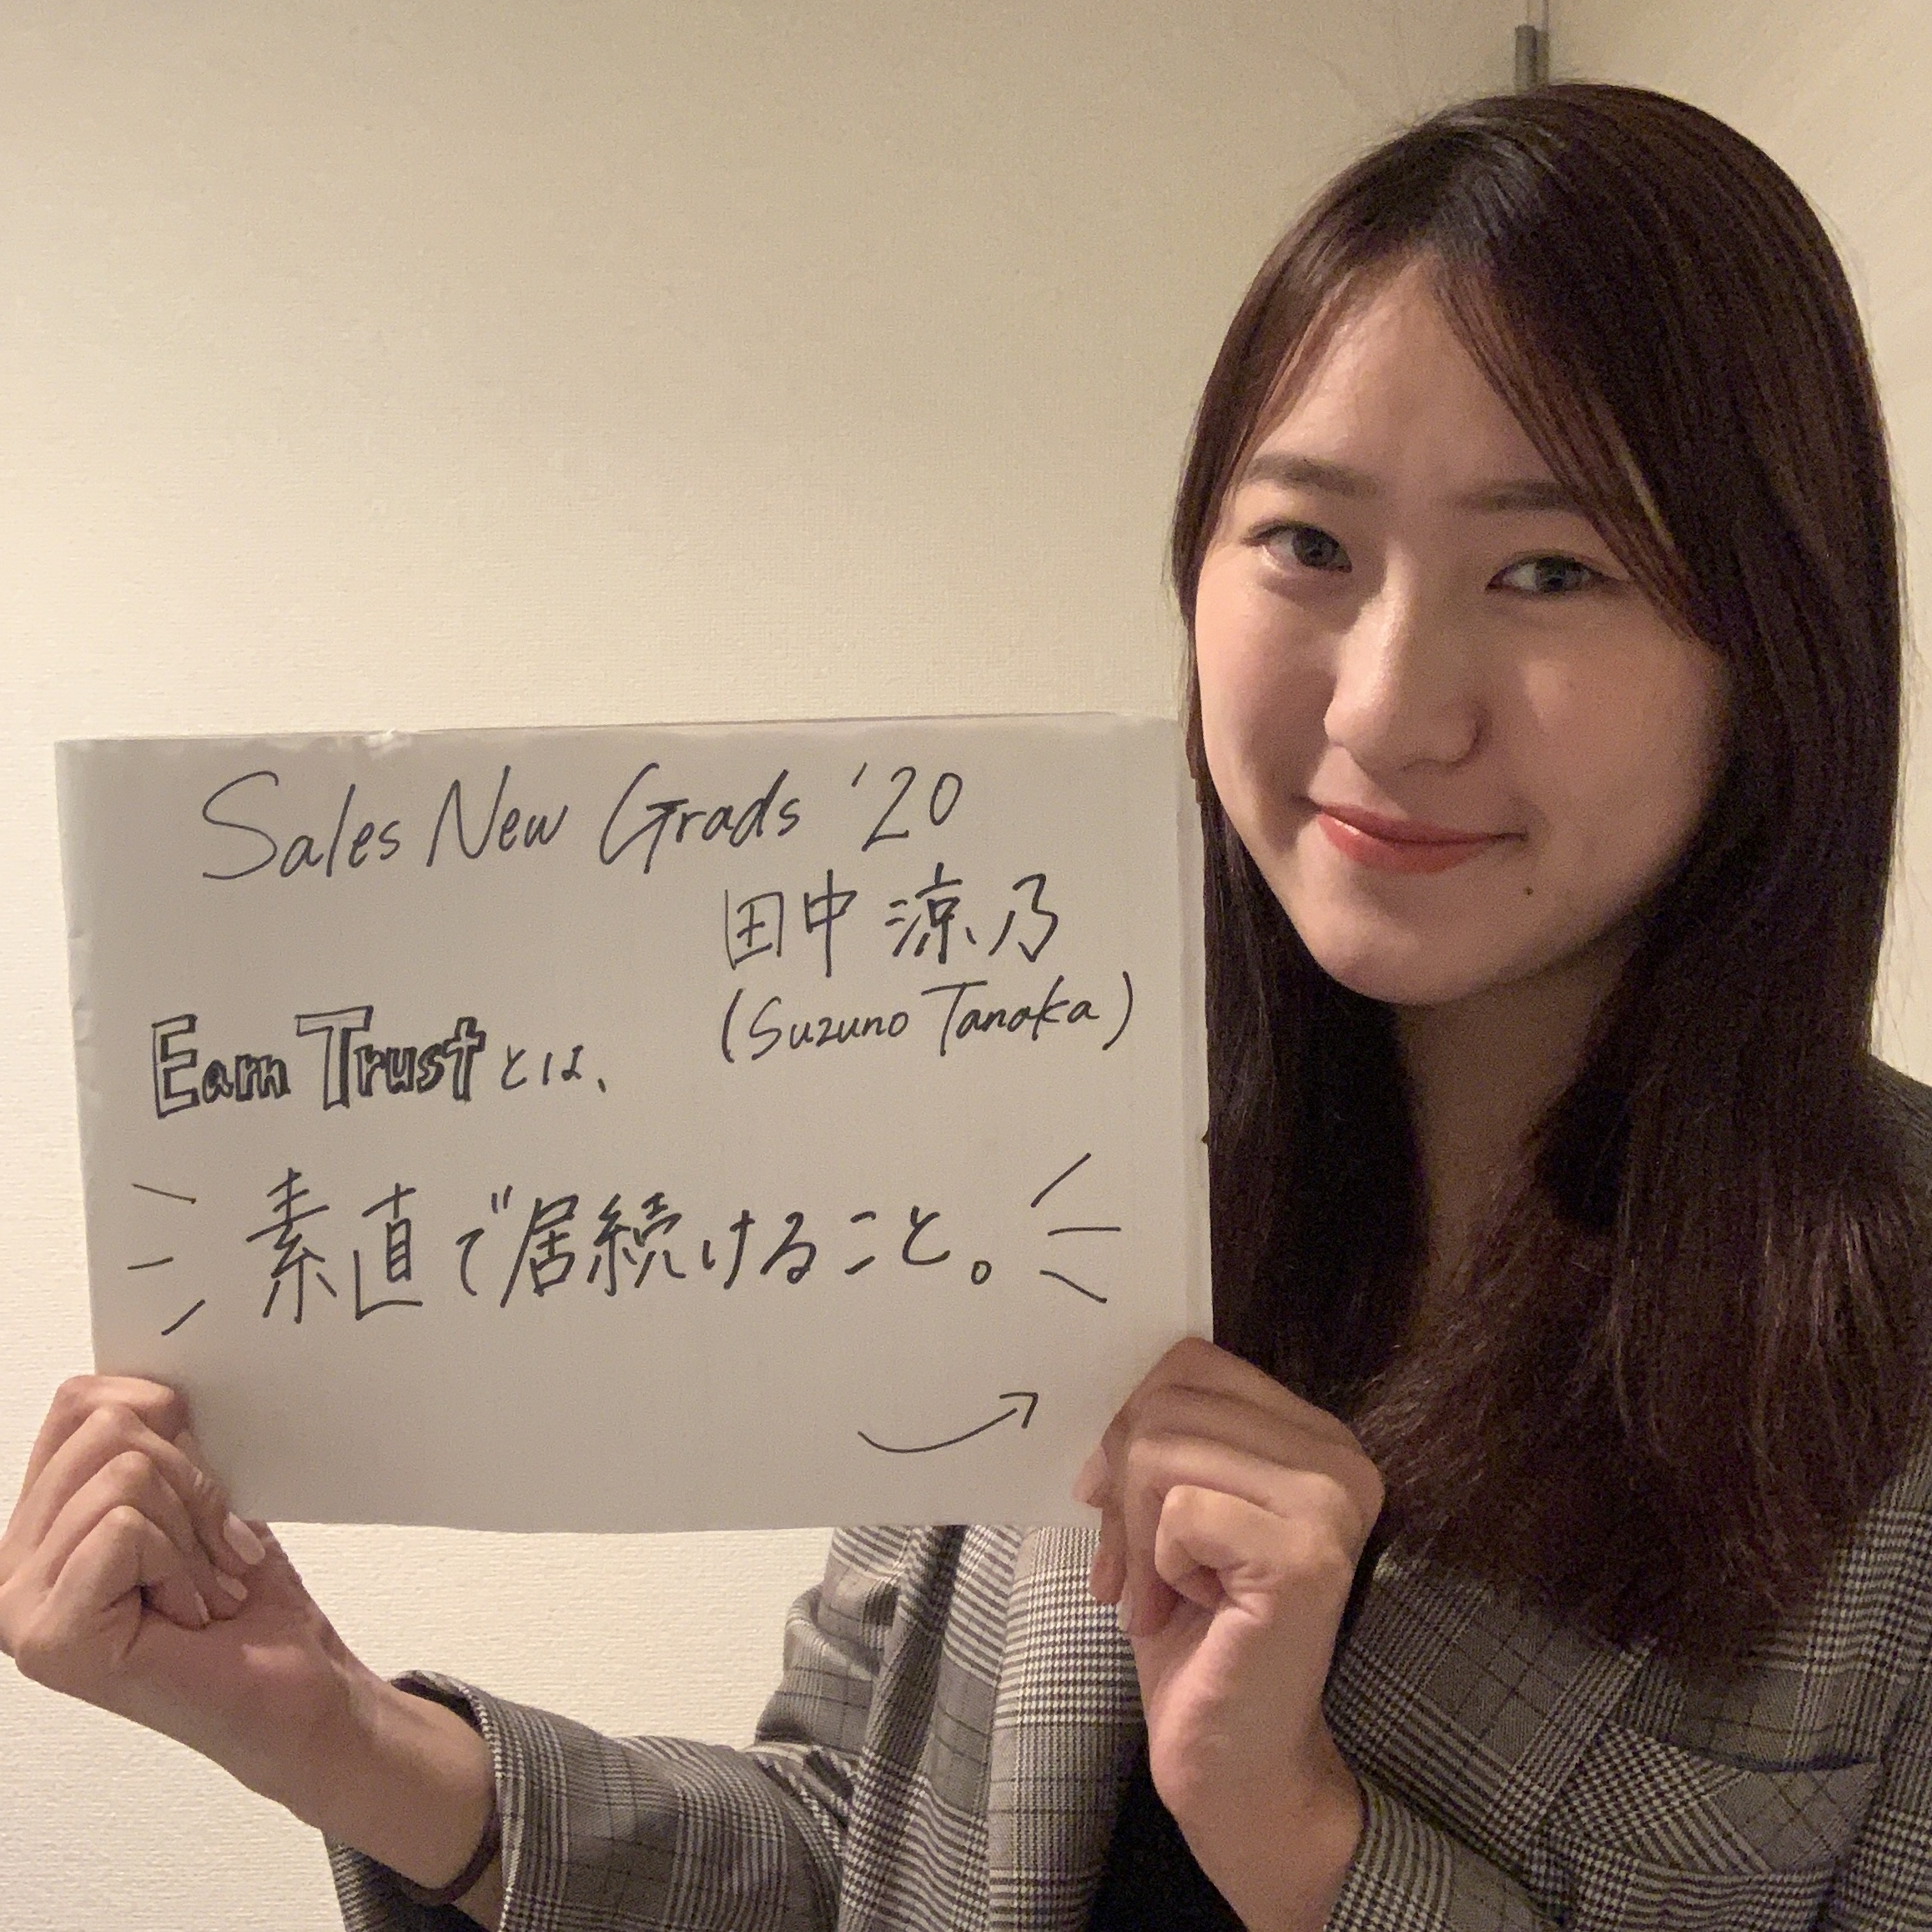 Sales New Grads '20
田中 涼乃
(Suzuno Tanaka)
Earn Trust とは、
素直で居続けること。